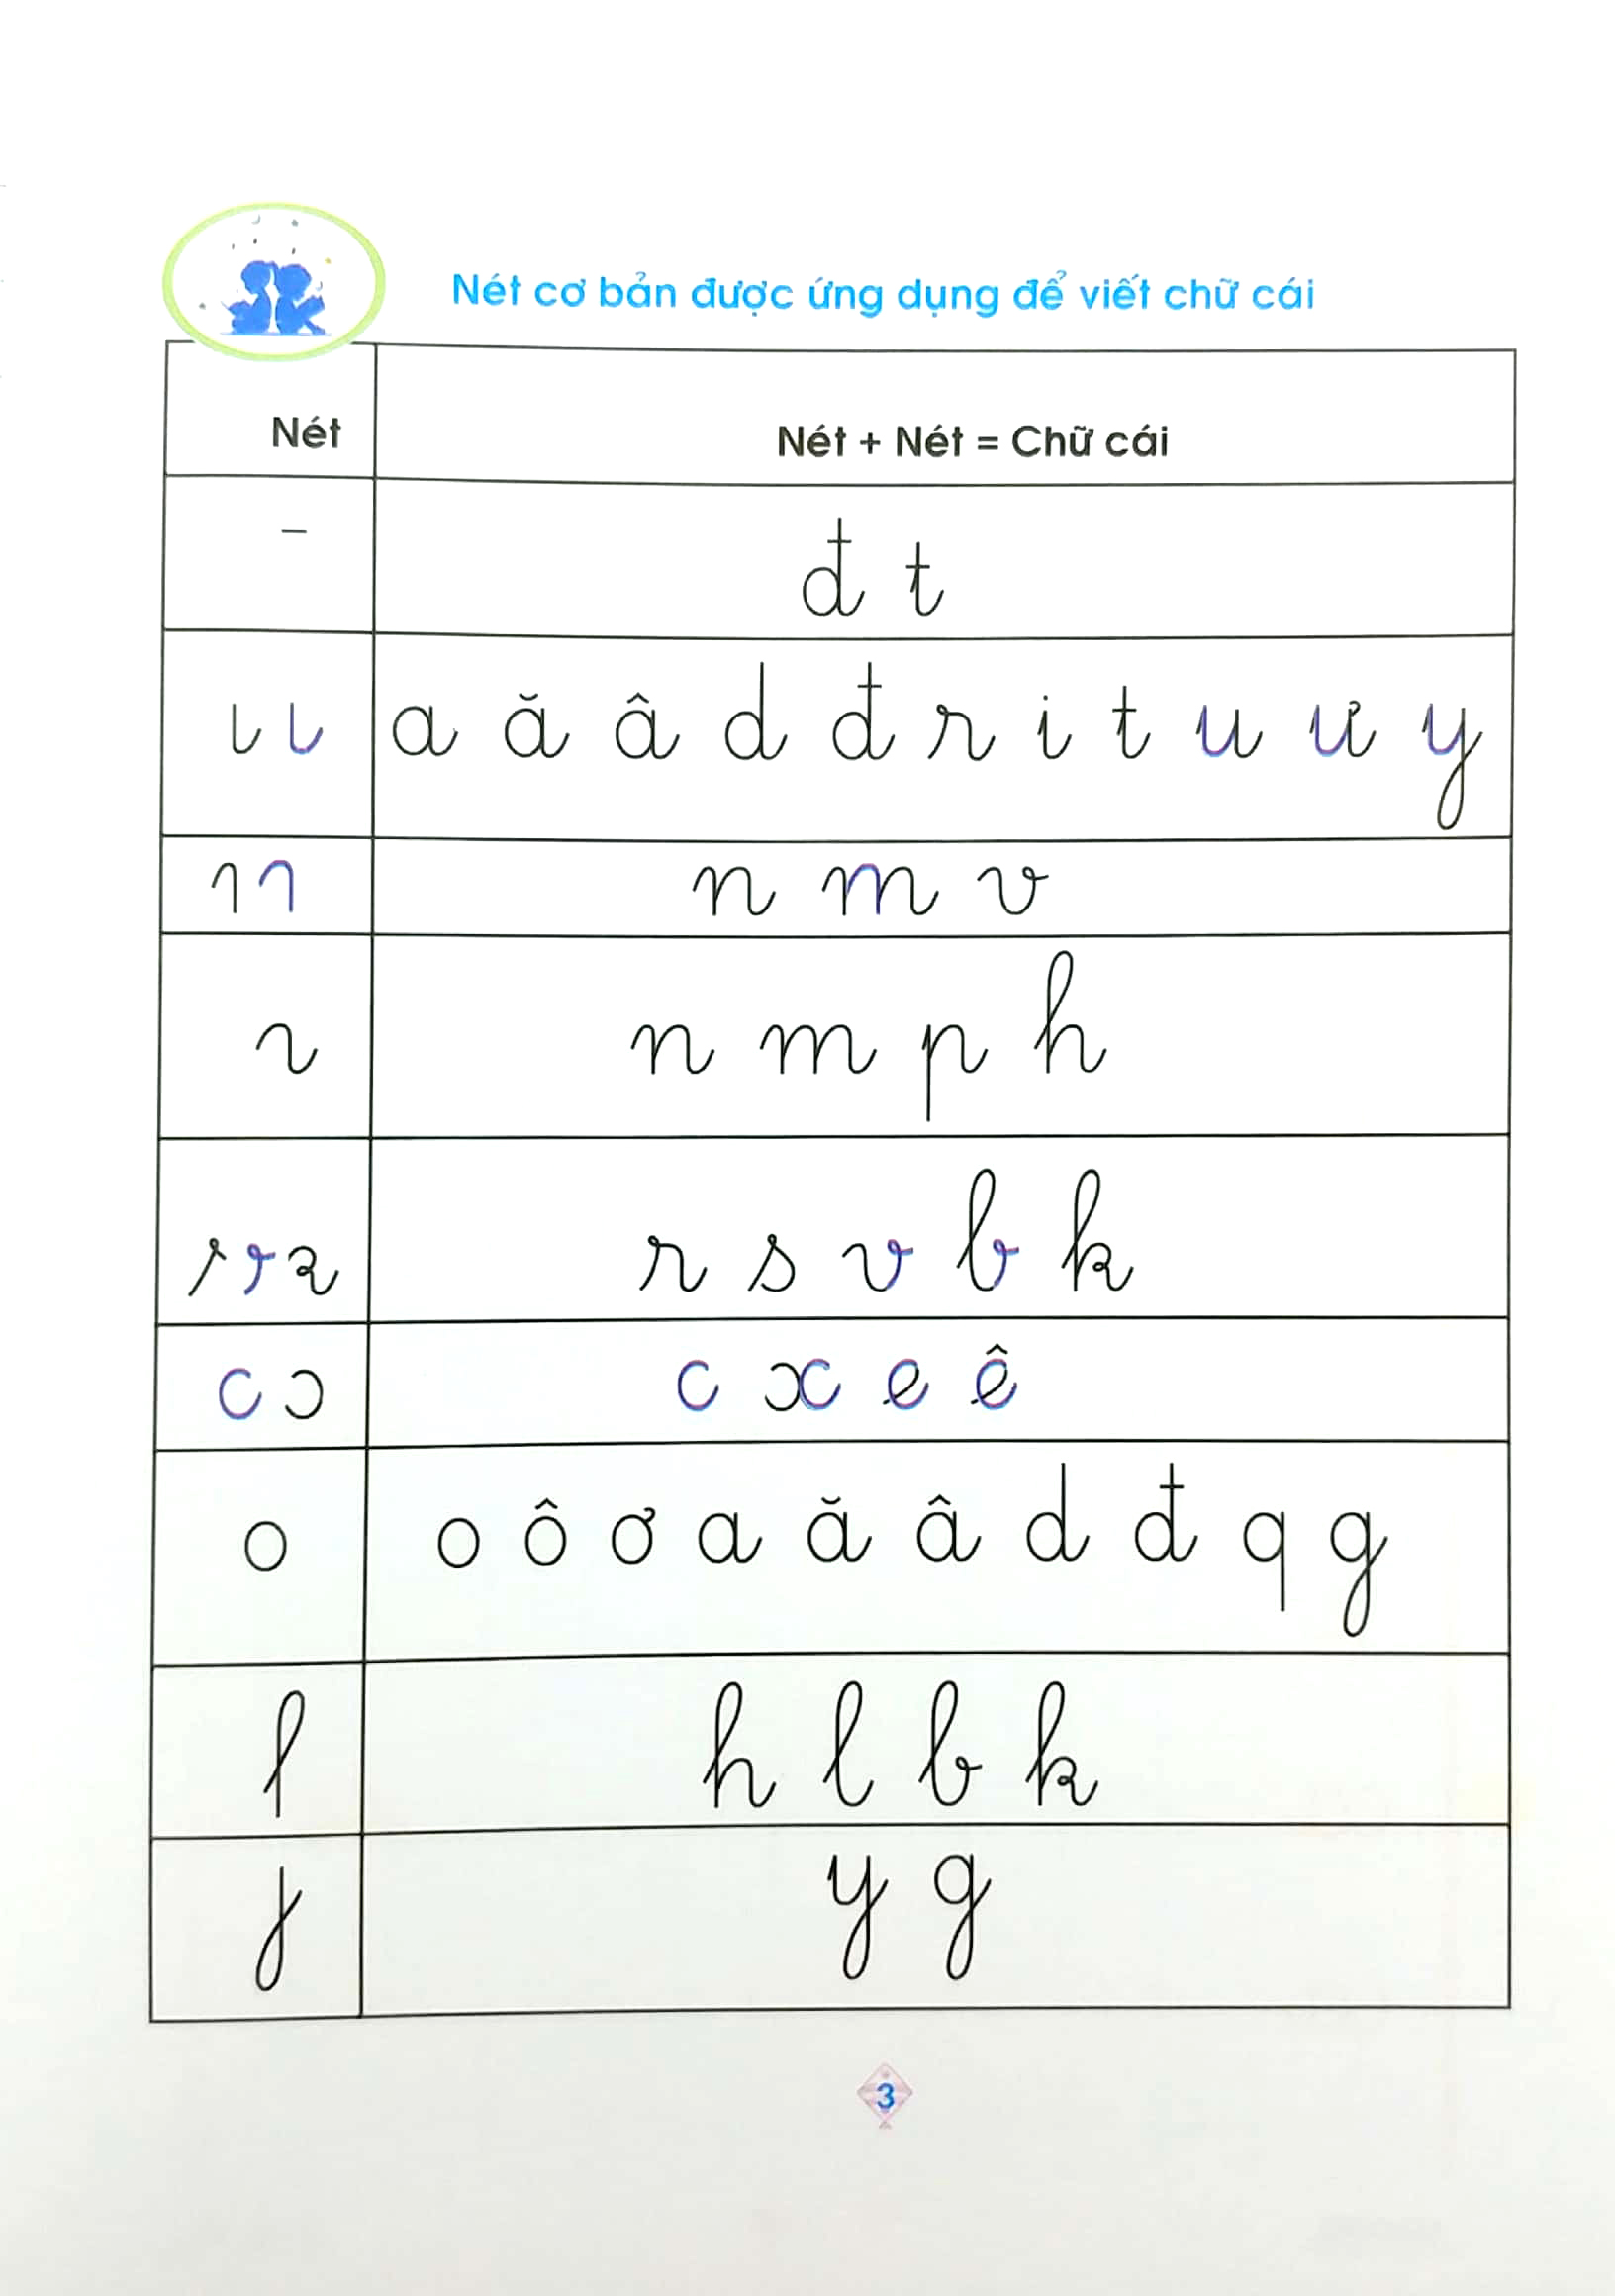 Nét cơ bản được ứng dụng để viết chữ cái
Nét Nét + Nét = Chữ cái
đ t
a ă â d đ r i t u ư y
n m v
n m p h
r s v b k
c x e ê
o o ô ơ a ă â d đ q g
h l b k
y g
3